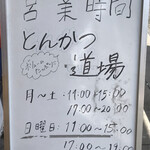 営業時間
とんかつ
道場
月〜土：11:00〜15:00
17:00〜20:00
日曜日：11:00〜15:00
17:00〜19:00